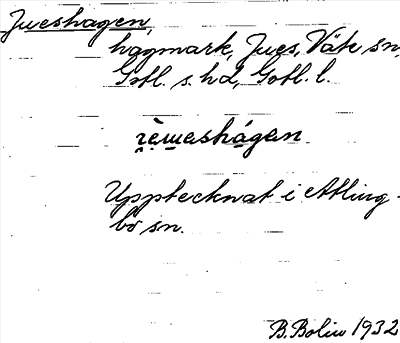 Jueshagen,
hagmark, Jues, Väte sn,
Gotl. s. hd, Gotl. l.
Upptecknat i Atling-
bo sn.
B. Bolin 1932